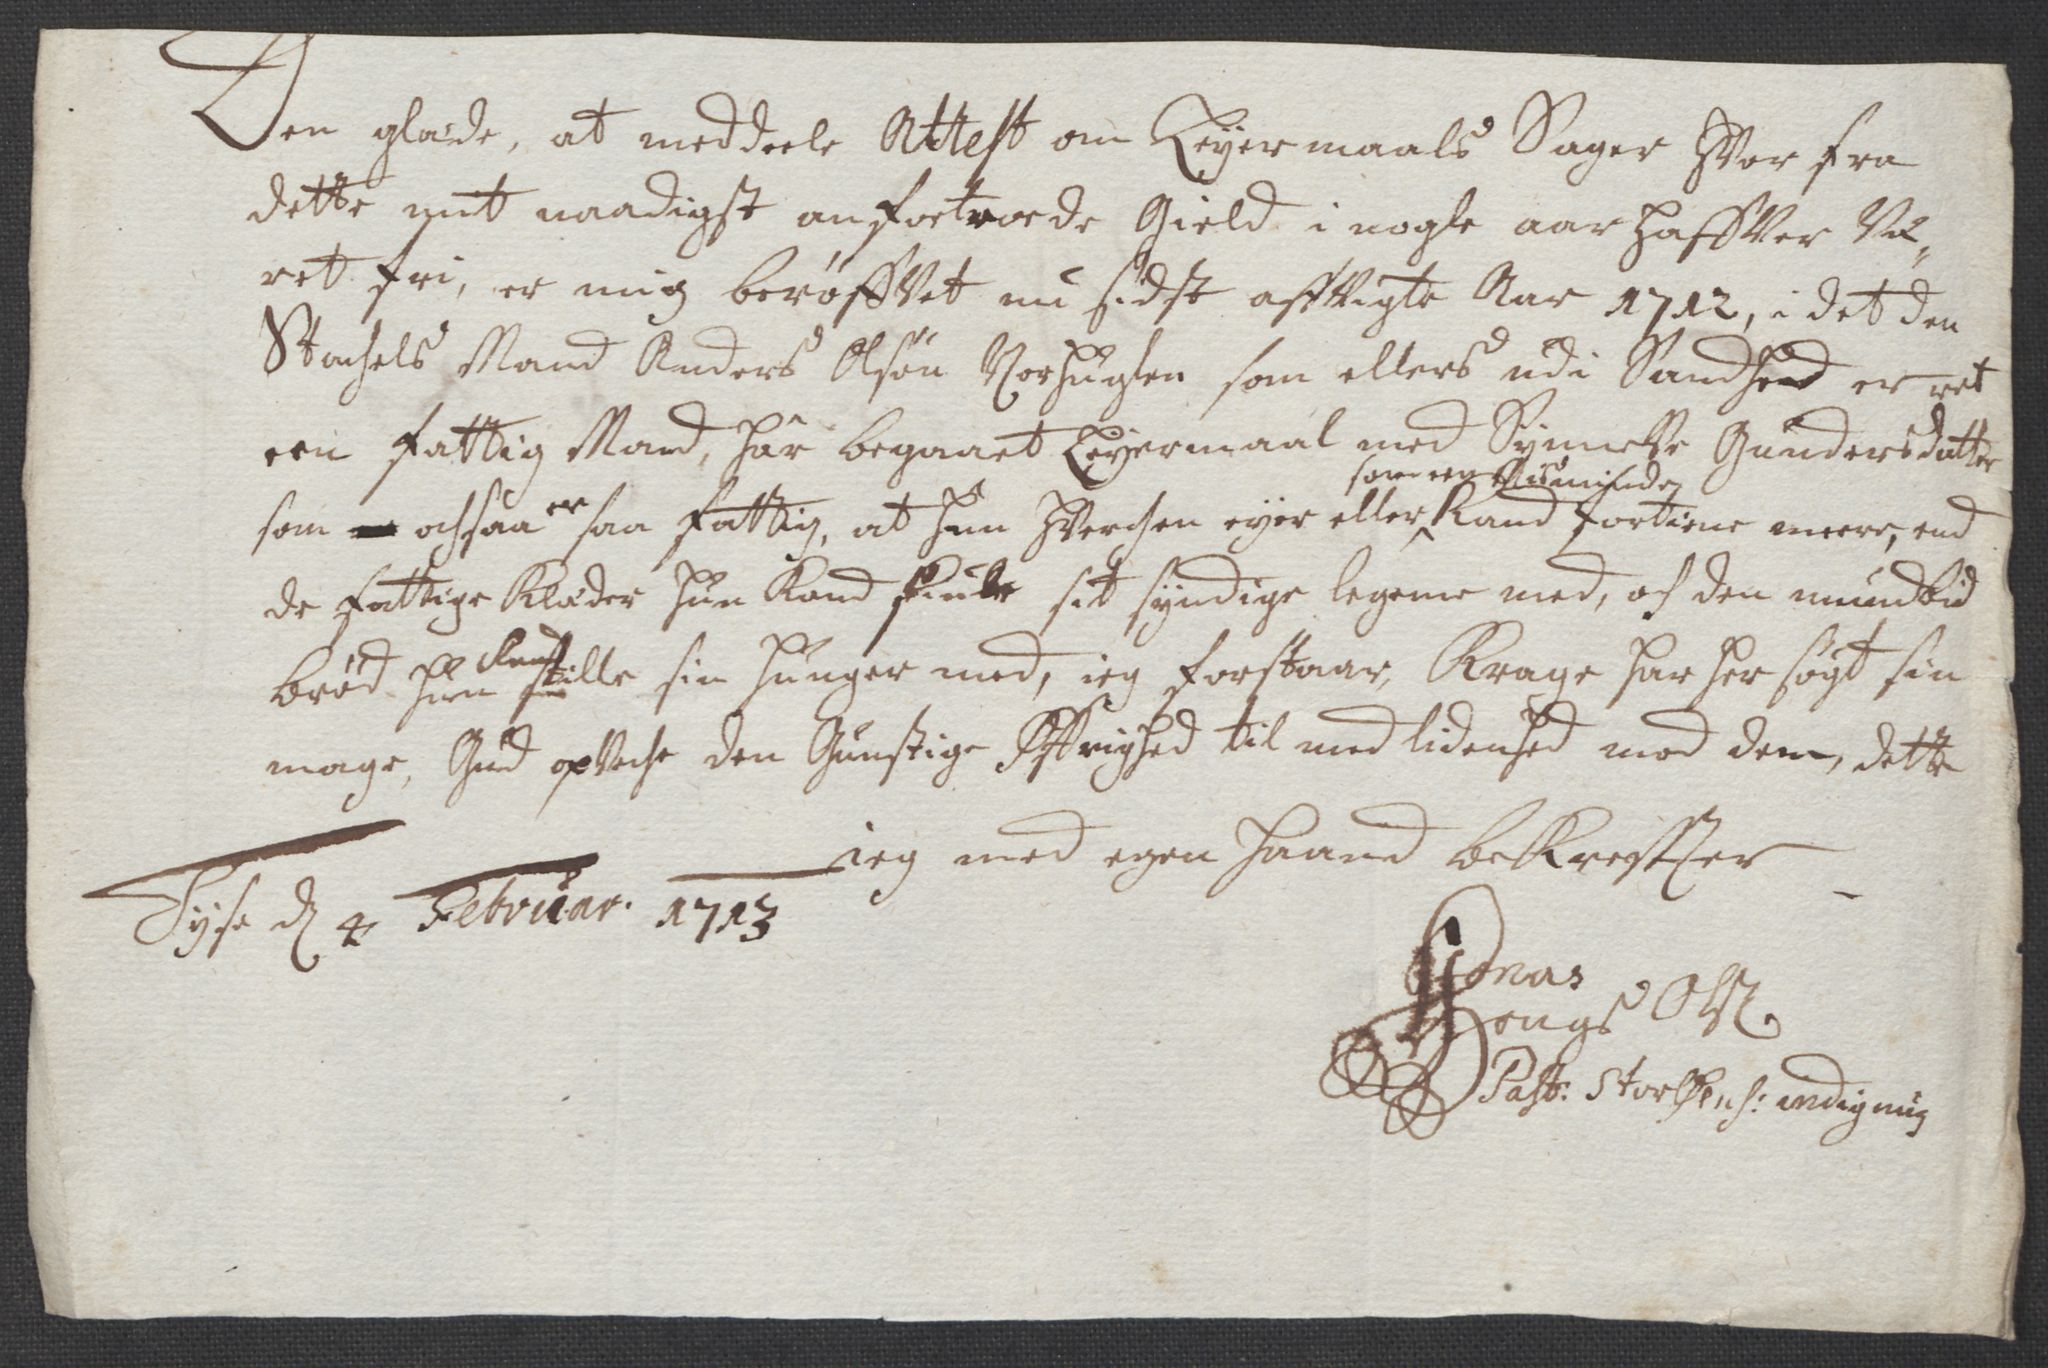 Den glæde, at meddeele Attest om Leyermaals Sager hvor fra
dette mit naadigst anfortroede Gield i nogle aar haffver Væ-
ret fri, er mig berøffvet nu sidst affvigte Aar 1712, i det den
Stachels Mand Anders Olsøn Norhuglen som ellers udi Sandhed er ret
een fattig Mand, har begaaet Leyermaal med Synneve Gundersdatter
som ochsaa er saa fattig, at hun hverchen eyer eller kand fortiene meere, end
som en
de fattige Klæder hun kand skiule sit syndige legeme med, och den mundbid
brød hun kand stille sin hunger med, ieg forstaar, Krage har her søgt sin
mage, Gud opveche den Gunstige Øffrighed til medlidenhed mod dem, dette
ieg med egen haand bekreffter
Tyse d 4 Februar. 1713
Jonas
Bengs Ols.
Past: Storøens: indignus